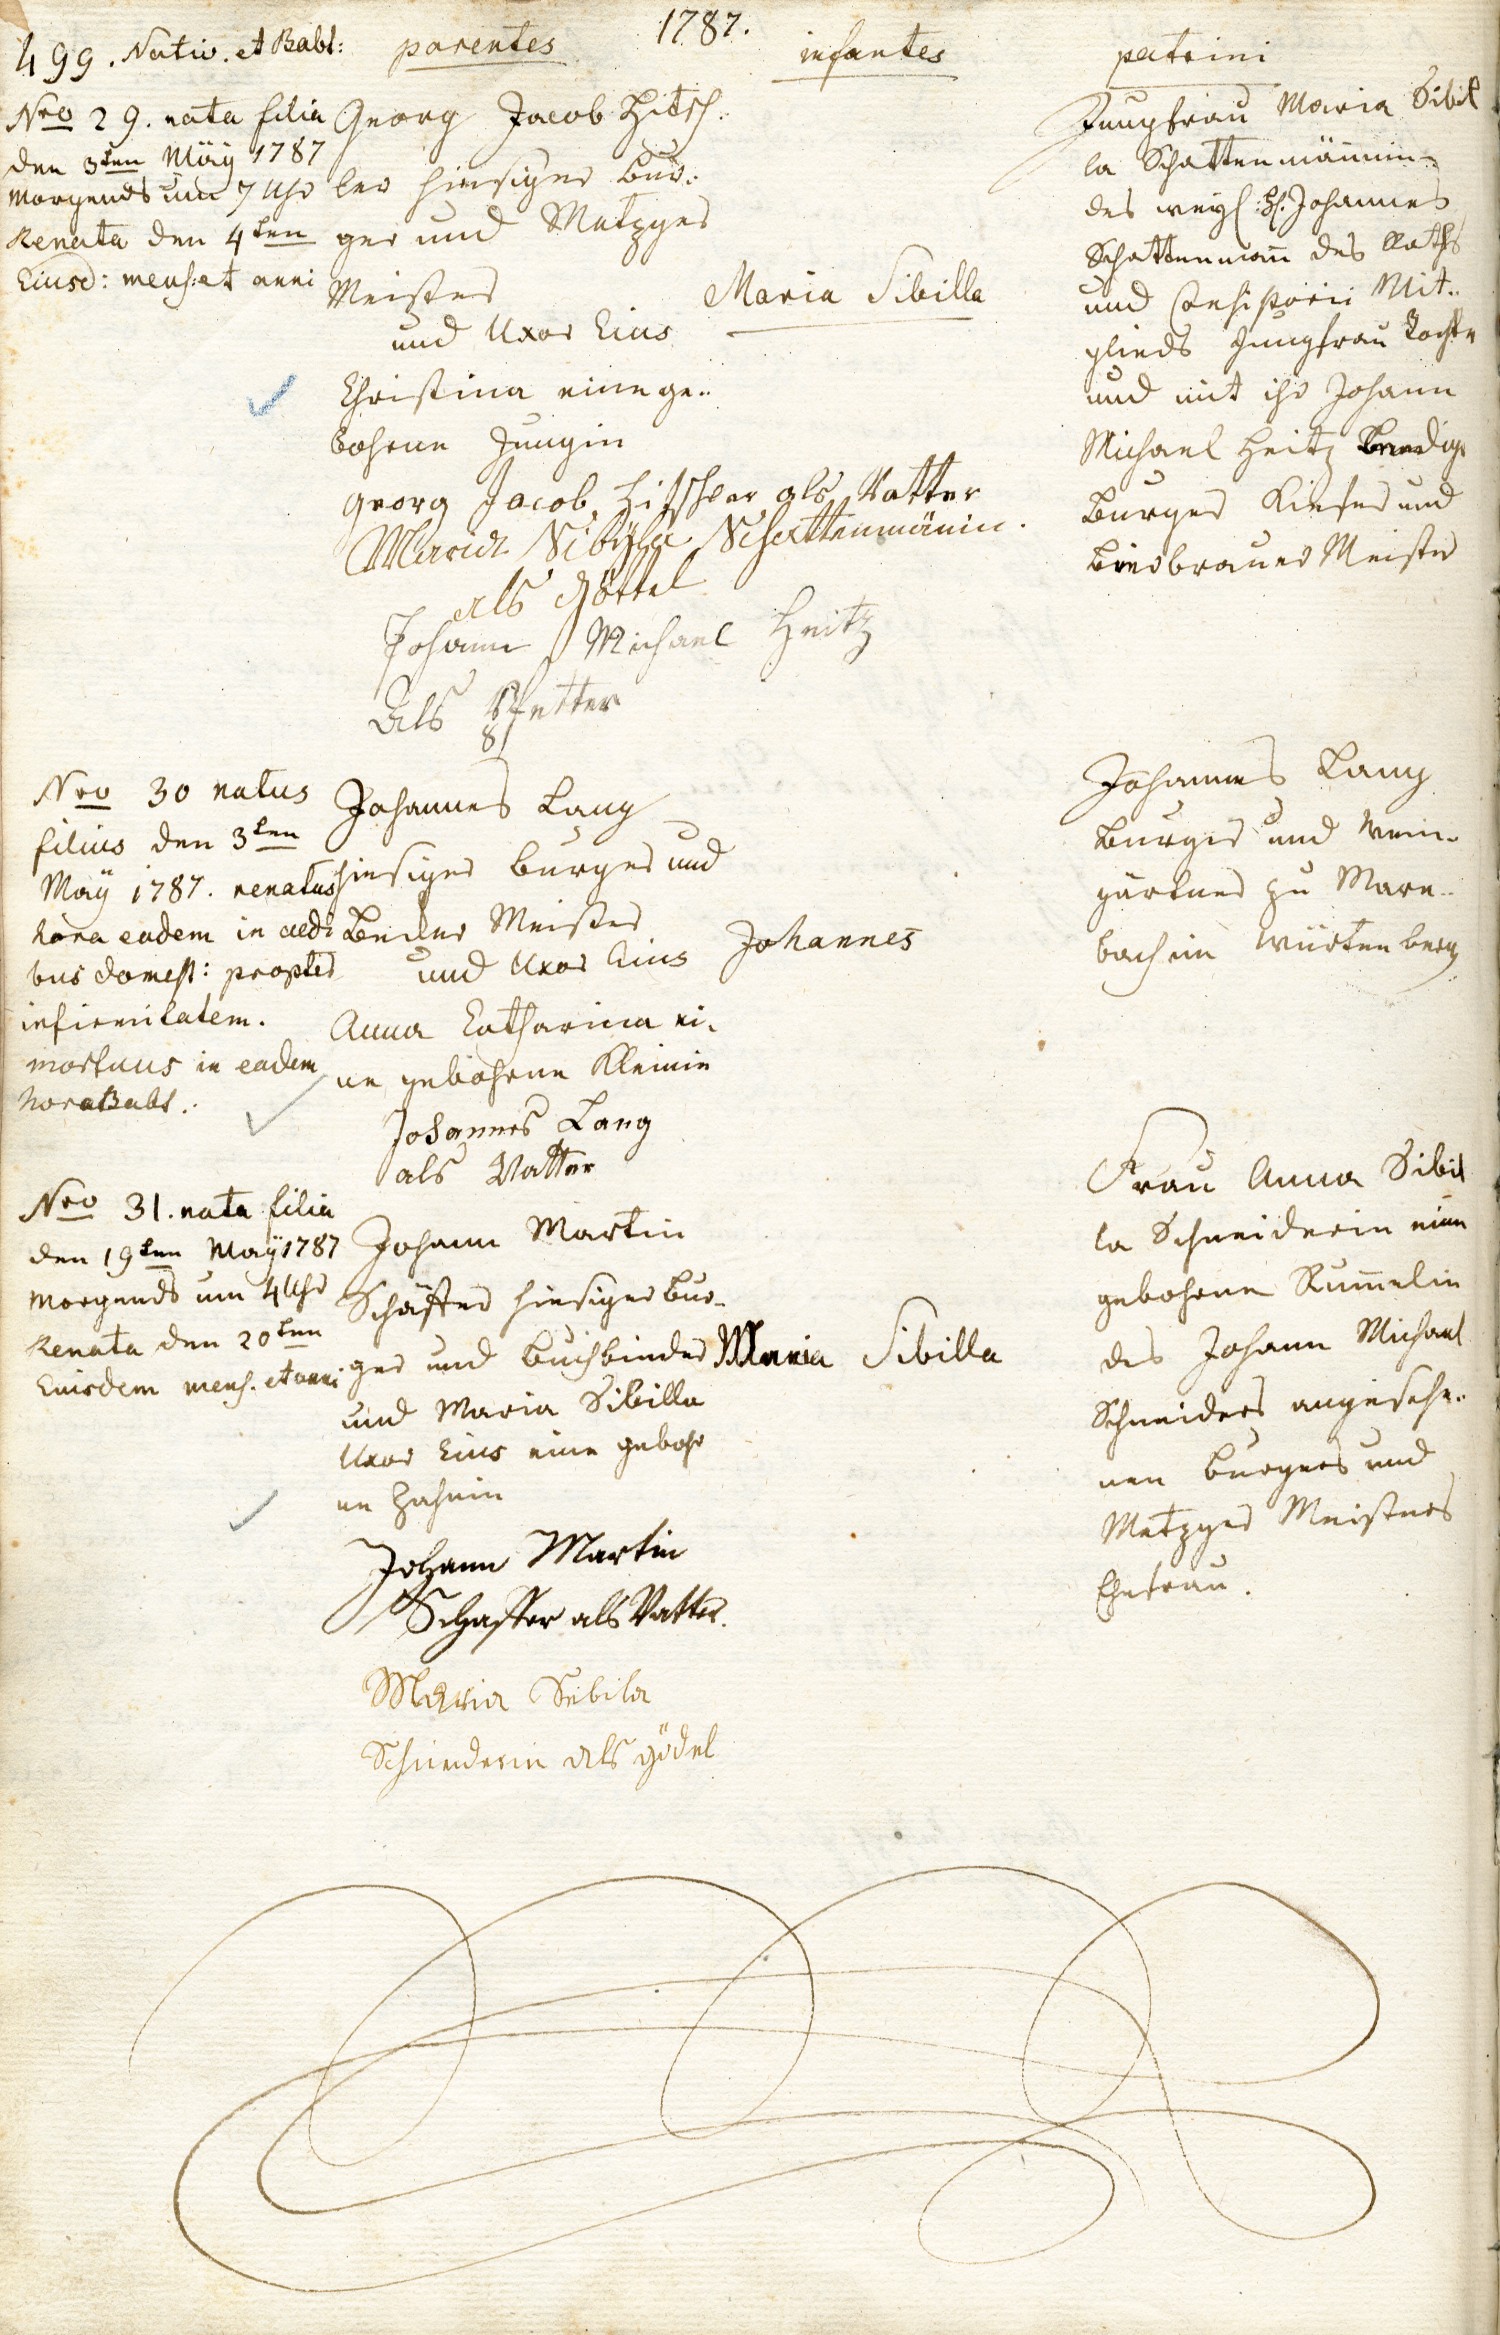 499. Nativ. et Babt:
parentes
1787.
infantes
patrini
Nro 29. nata filia
den 3ten Mäÿ 1787
Morgends um 7 Uhr
Renata den 4ten
Eiusd: mens: et anni
Georg Jacob Hitsch-
ler hiesiger Bur-
ger und Metzger
Meister
und Uxor Eius
Christina eine ge-
bohrne Jungin
Maria Sibilla
georg Jacob Hitschler als Vatter
Maria Sibÿla Schattenmänin.
als Göttel
Johann Michael Heitz
Als Pfetter
Jungfrau Maria Sibil
la Schattenmännin
des weyl: H. Johannes
Schattenmañ des Raths
und Consistorii Mit-
glieds Jungfrau Tochter
und mit ihr Johann
Michael Heitz
Burger Kiefer und
Bierbrauer Meister
Nro 30 natus
filius den 3ten
Maÿ 1787. renatus
hora eadem in aedi
bus domest: propter
infirmitatem.
mortuus in eadem
hora Babt.
Johannes Lang
hiesiger Burger und
Bender Meister
und Uxor Eius
Anna Catharina ei-
ne gebohrne Kleinin
Johannes
Johannes Lang
als Vatter
Johannes Lang
Burger und Wein-
gärtner zu Marr-
bach im Würtenberg
Nro 31. nata filia
den 19ten Maÿ 1787
Morgends um 4 Uhr
Renata den 20ten
Eiusdem mens. et anni
Johann Martin
Schäffer hiesiger Bur-
ger und Buchbinder
und Maria Sibilla
Uxor Eius eine gebohr
ne Hahnin
Maria Sibilla
Johann Martin
Schaffer als Vatter.
Maria Sebila
Schneiderin als gödel
Frau Anna Sibil
la Schneiderin eine
gebohrne Rum̄elin
des Johann Michael
Schneiders angesehe-
nen Burgers und
Metzger Meisters
Ehefrau.